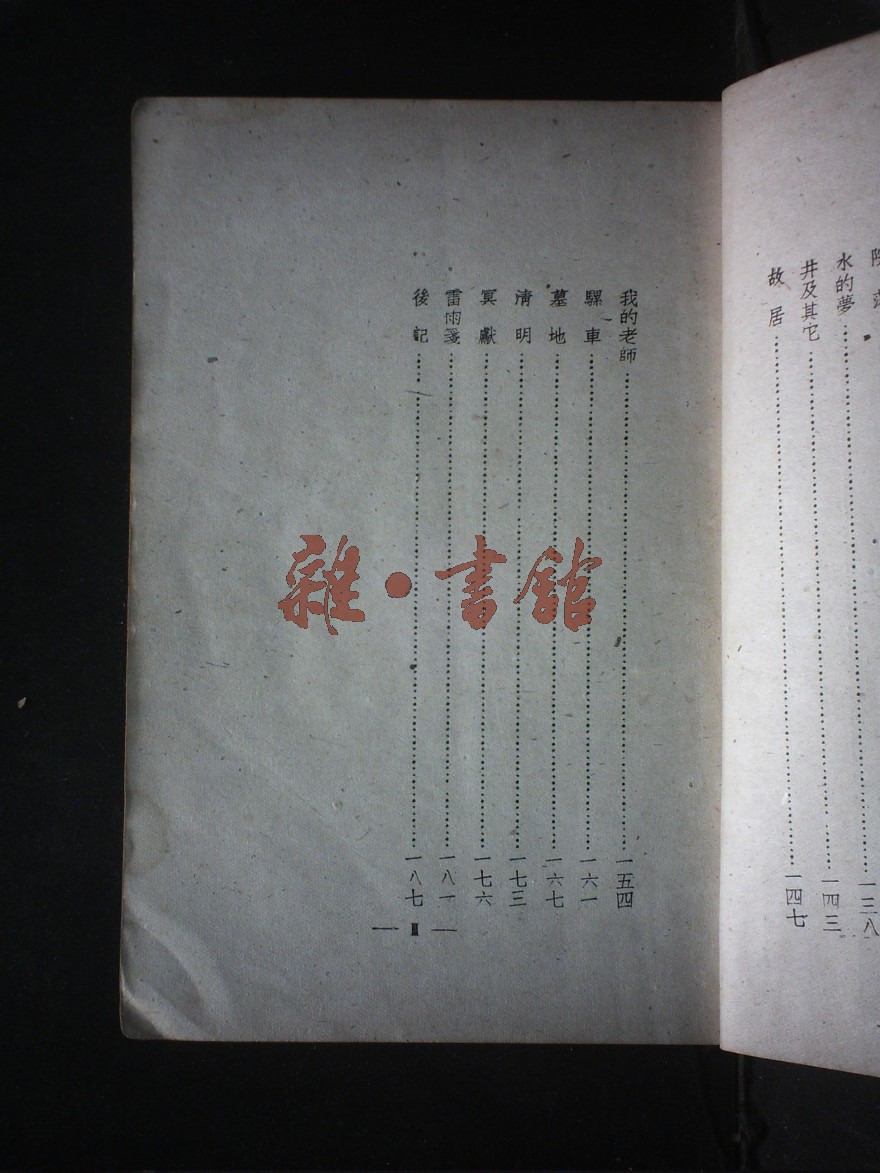 水的夢……一三八
井及其它……一四三
故居……一四七
我的老師……一五四
騾車……一六一
墓地……一六七
清明……一七三
冥獻……一七六
雷雨箋……一八一
後記……一八七
— II —
雜·書館